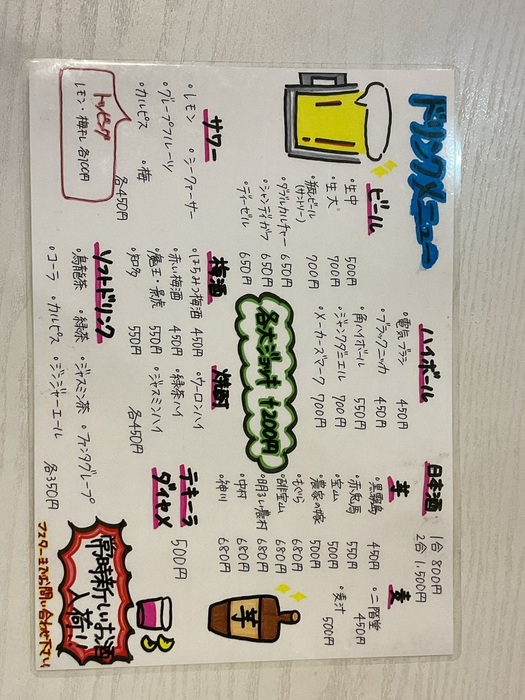 ドリンクメニュー
ビール
・生中 500円
・生大 700円
・瓶ビール(サントリー) 700円
・ダブルカルチャー 650円
・シャンディガフ 650円
・ディーゼル 650円
ハイボール
・電気ブラン 450円
・ブラックニッカ 450円
・角ハイボール 550円
・ジャックダニエル 700円
・メーカーズマーク 700円
各大ジョッキ +200円
日本酒
1合 800円
2合 1.500円
芋
・黒霧島 450円
・赤兎馬 550円
・宝山 500円
・農家の嫁 500円
・もぐら 680円
・宝山 680円
・明るい農村 680円
・中村 680円
・神川 680円
麦
・二階堂 450円
・麦汁 500円
サワー
・レモン
・シークァーサー
・グレープフルーツ
・カルピス
・梅
各450円
トッピング
レモン・梅干し 各100円
梅酒
・はちみつ梅酒 450円
・赤い梅酒 450円
・魔王・景虎 550円
・知多 550円
焼酎
・ウーロンハイ
・緑茶ハイ
・ジャスミンハイ
各450円
テキーラ
ダイヤメ
500円
ソフトドリンク
・烏龍茶
・緑茶
・ジャスミン茶
・ファンタグレープ
・コーラ
・カルピス
・ジンジャーエール
各350円
芋
常時新しいお酒
入荷!!
お問い合わせ下さい